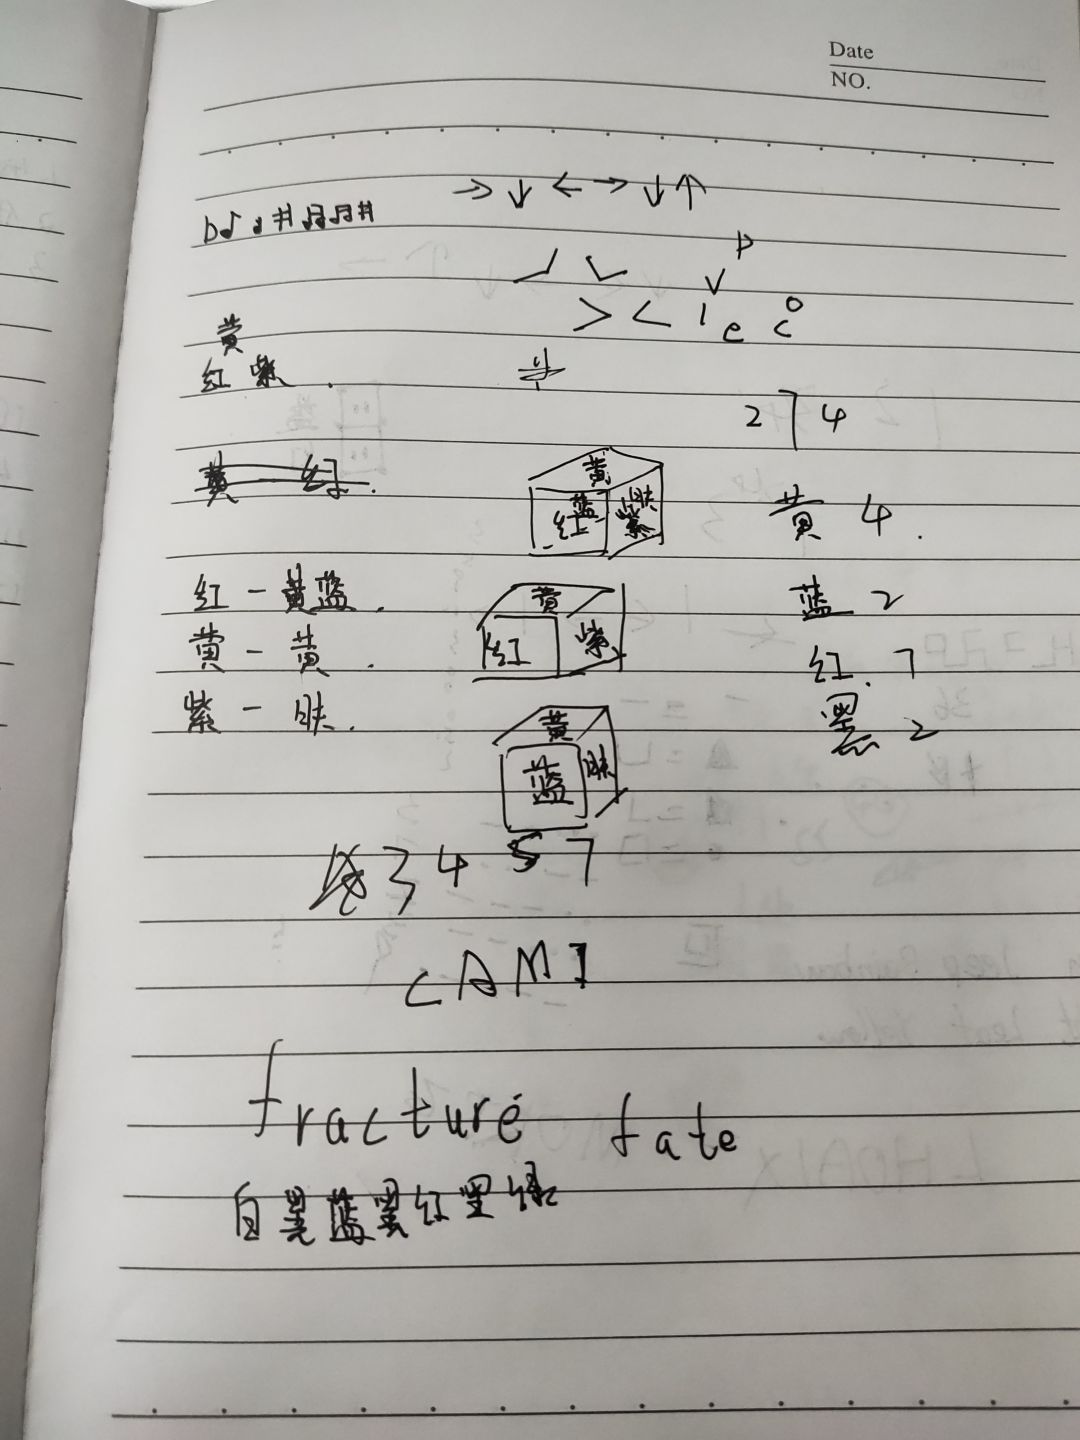 Date
NO.
→ ↓ ← → ↓ ↑
b♪♪#♫♫#
> < l e c o
黄
红 紫.
2 4
黄 红.
黄
蓝 肤
红 紫
黄 4.
红-黄蓝.
黄
红 紫
蓝 2
黄-黄.
红. 7
紫-肤.
黄
蓝 肤
黑 2
3 4 5 7
CAMI
fracture fate
白黑蓝黑红黑绿